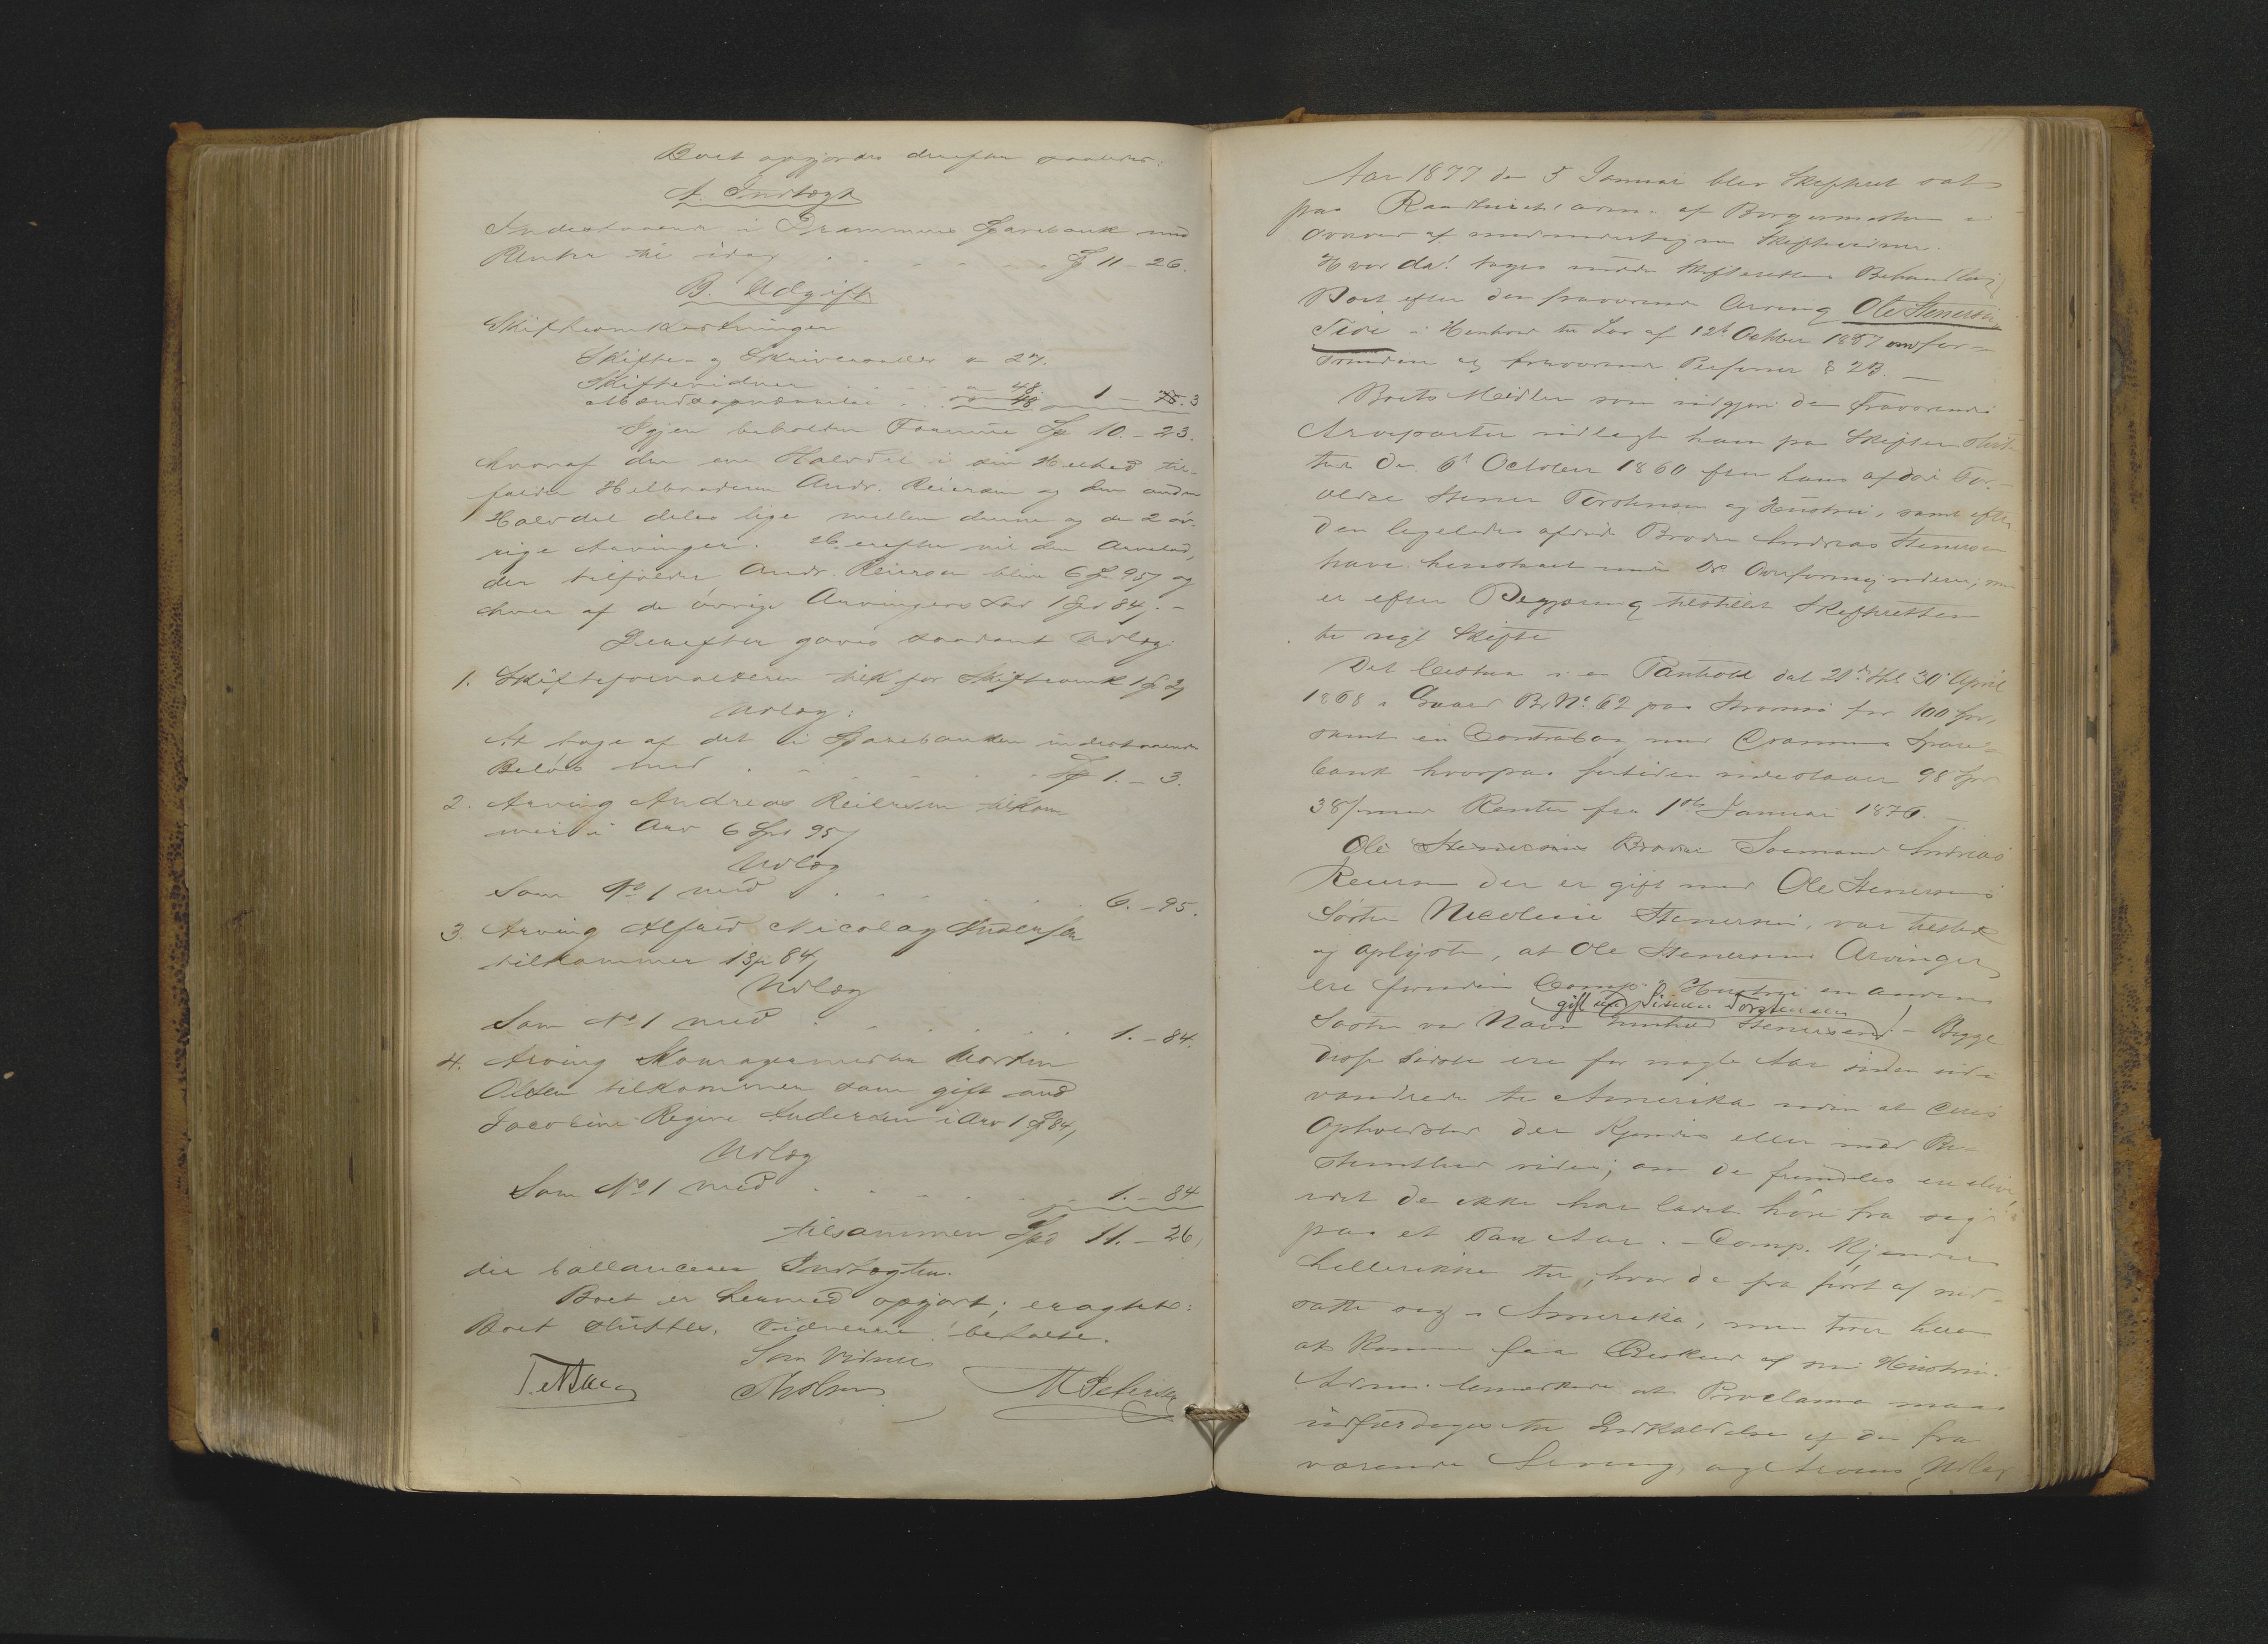 Boet opgjordes derefter saaledes:
A. Indtægt
Indestaaende i Drammens Sparebank med
Renter til idag . . . Sp 11 - 26.
B. Udgift
Skifteomkostninger
Skifte- og Skriversalær " 27.
Skiftevidner . . . " 48.
. . . " 48 1 - 3
Igjen beholden Formue Sp 10. - 23.
hvoraf den ene Halvdel i sin Helhed til-
falder Helbroderen Andr. Reiersen og den anden
Halvdel deles lige mellem denne og de 2 øv-
rige Arvinger. Herefter vil den Arvelod,
der tilfalder Andr. Reiersen blive 6 Sp 95 og
hver af de øvrige Arvingers Lod 1 Spd 84. -
Derefter gaves saadant Udlæg:
1. Skifteforvalteren tilk for Skifteomk 1 Sp 3
Udlæg:
At tage af det i Sparebanken indestaaende
Beløb med . . . Sp 1. - 3.
2. Arving Andreas Reiersen tilkom
mer i Arv 6 Spd 95
Udlæg
Som No 1 med . . . 6. - 95.
3. Arving Alfred Nicolay Andersen
tilkommer 1 Sp 84
Udlæg
Som No 1 med . . . 1. - 84.
4. Arving Morten
Olsen tilkommer som gift med
Jacobine Regine Andersen i Arv 1 Sp 84,
Udlæg
Som No 1 med . . . 1. - 84
tilsammen Spd 11. - 26,
der ballancerer Indtægten.
Boet er hermed opgjort; eragtet:
Boet sluttes. Vidnerne betalte.
Som Vidner
M Petersen
Aar 1877 den 5 Januar blev Skifteret sat
paa Raadhuset adm. af Borgermesteren i
Overvær af medundertegnede Skiftevidner.
Hvor da! toges under Skifterettens Behandling
Boet efter den fraværende Arving Ole Stenersen
i Henhold til Lov af 12te October 1857 om for-
svundne og fraværende Personer § 2B. -
Boets Midler som udgjør den Fraværendes
Arveparter udlagt ham paa Skifter slut-
tet den 6te October 1860 efter hans afdøde For-
ældre Stener Torstensen og Hustru, samt efter
den ligeledes afdøde Broder Andreas Stenersen
have henstaaet under Overformynderiet, men
er efter Begjæring tilstillet Skifteretten
til vegl Skifte
Det bestaar i en Pantobl dat 21de Thl 30te April
1868 i Gaard Br No 62 paa Strømsø for 100 Spd,
samt en Contrabog med Drammens Spare-
bank hvorpaa fortiden indestaar 98 Spd
38 med Renter fra 1ste Januar 1876. -
Ole Stenersens Broder Sømand Andreas
Reiersen der er gift med Ole Stenersens
Søster Nicoline Stenersen, var tilstede
og oplyste, at Ole Stenersens Arvinger
ere foruden Comp. Hustru en anden
gift med Simen Torstensen
Søster ved Navn Gunhild Stenersen - Begge
disse sidste ere for nogle Aar siden ud-
vandrede til Amerika uden at deres
Opholdssted der kjendes eller med Be-
stemthed vides, om de fremdeles ere ilive,
idet de ikke har ladet høre fra sig
paa et Par Aar. - Comp. kjender
hellerikke til, hvor de fra først af ned-
satte sig i Amerika, men troer herom
at kunne faa Besked af sin Hustru.
Adm. bemærkede at Proclama maa
udfærdiges til Indkaldelse af den fra
værende Arving, og Arvens Udlæg